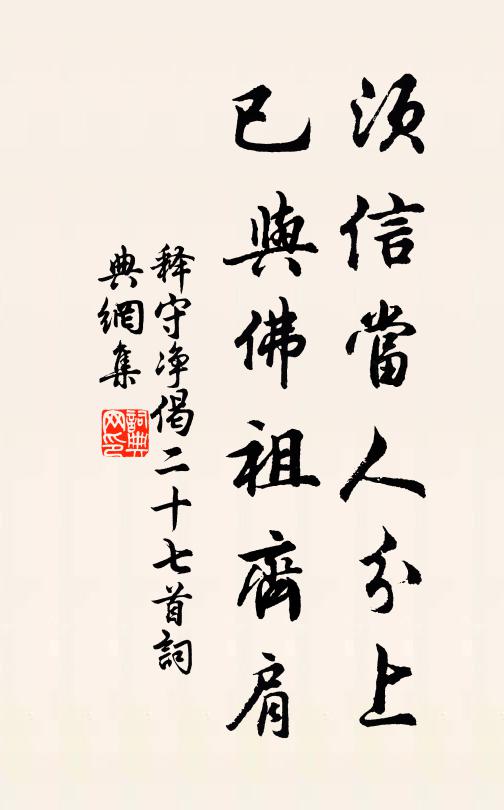 須信當人分上
已與佛祖齊肩
釋守净偈二十七首詞
典網集
詞典网印